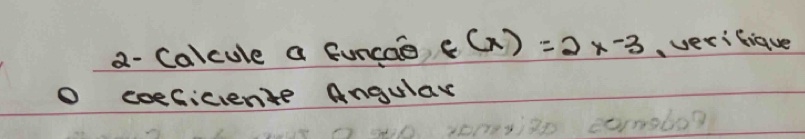 2- Calcule a função f(x) = 2x-3, verifique
o coeficiente Angular